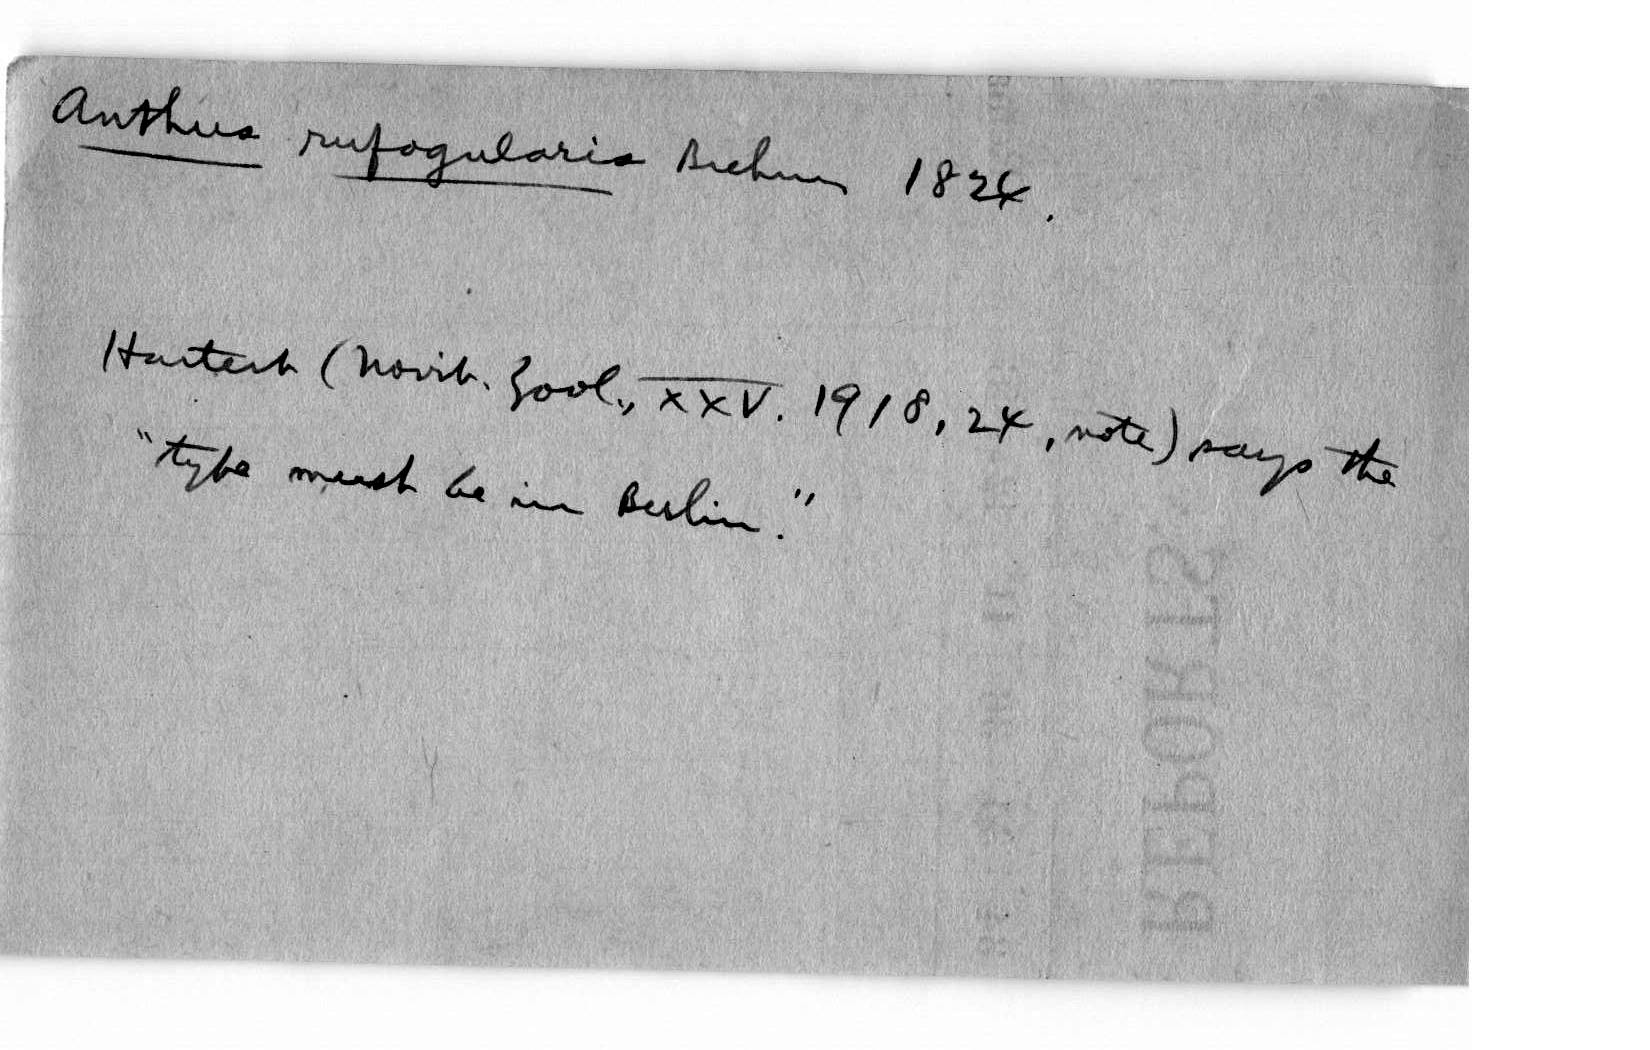 Anthus rufogularis Brehm 1824.
Hartert (Novit. Zool., XXV. 1918, 24, note) says the
"type must be in Berlin."
REPORTS